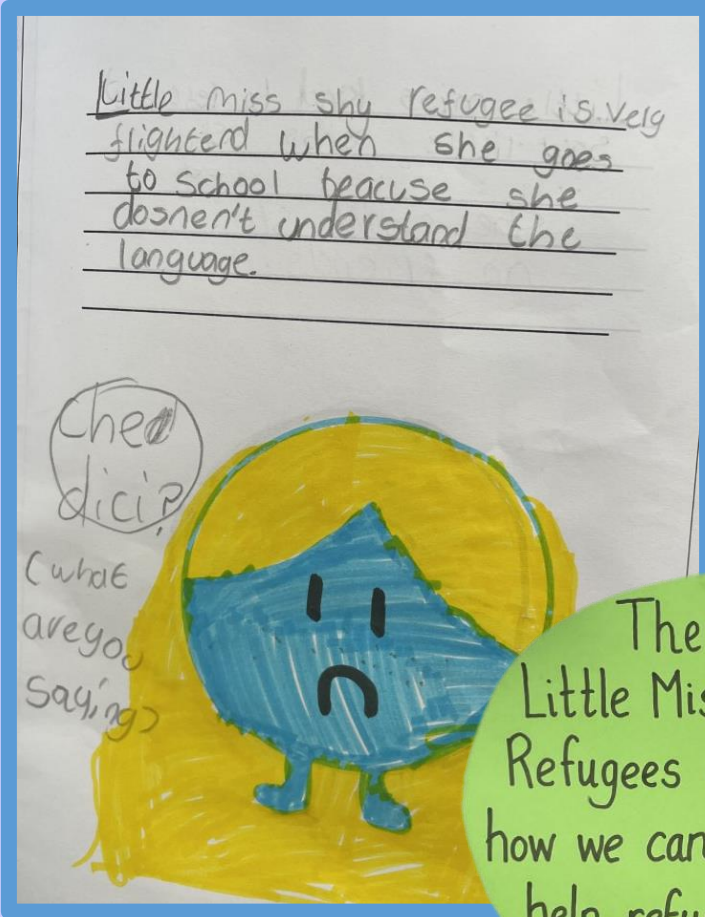 Little miss shy refugee is very
flightend when she goes
to school beacuse she
dosnen't understand the
language.
Che
dici?
(what
are you
saying)
The
Little Mis
Refugees
how we can
help refu